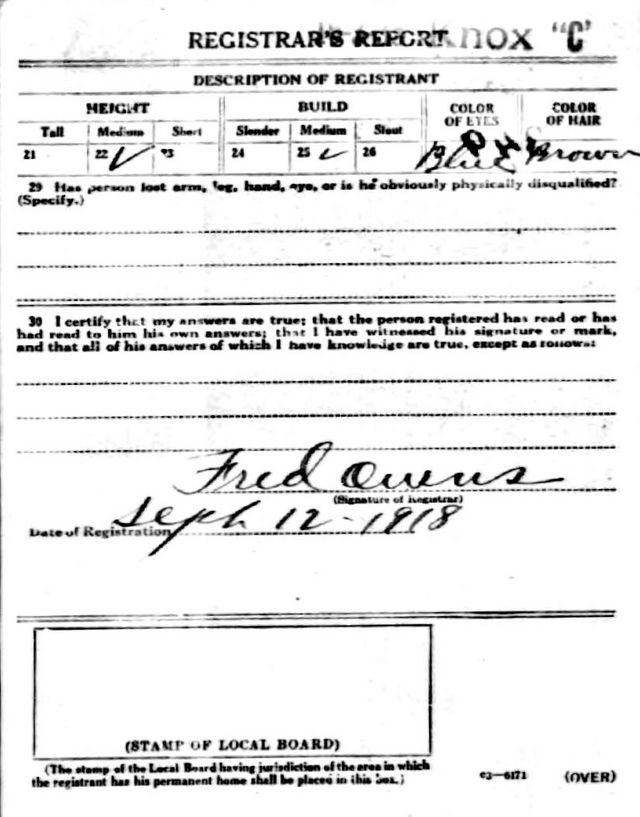 Knox "C"
REGISTRAR'S REPORT
DESCRIPTION OF REGISTRANT
HEIGHT BUILD COLOR OF EYES COLOR OF HAIR
Tall Medium Short Slender Medium Stout
21 22 ✓ 23 24 25 ✓ 26 Blue Brown
29 Has person lost arm, leg, hand, eye, or is he obviously physically disqualified?
(Specify.)
30 I certify that my answers are true; that the person registered has read or has
had read to him his own answers; that I have witnessed his signature or mark,
and that all of his answers of which I have knowledge are true, except as follows:
Fred Owens
(Signature of Registrar)
Date of Registration Sept 12-1918
(STAMP OF LOCAL BOARD)
(The stamp of the Local Board having jurisdiction of the area in which
the registrant has his permanent home shall be placed in this box.)
03—6171 (OVER)